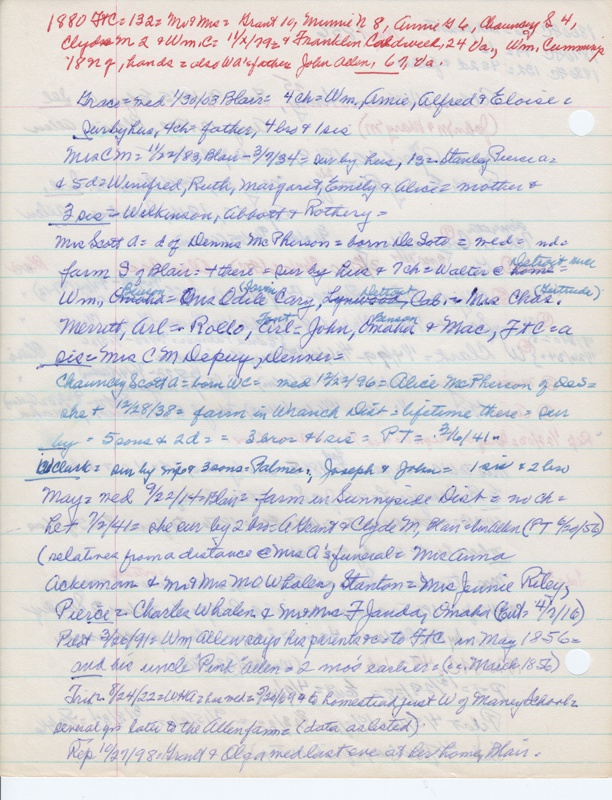 1880 FtC = 132 = Mr & Mrs = Grant 10, Minnie N 8, Annie G 6, Chauncey S 4,
Clyde M 2 & Wm. C = 11/2/79 = & Franklin Caldweed, 24 Va., Wm. Cummings
18 N Y, hands = also Wa's father John Aden, 67, Va
Grace = med 1/30/03 Blair = 4 ch = Wm, Arnie, Alfred & Eloise
Sur by hus, 4 ch = father, 4 bros & 1 sis
Mrs C M = 11/22/83, Blair - 3/7/34 = sur by hus, 1 s = Stanley Pierce a =
& 5 d = Winifred, Ruth, Margaret, Emily & Alice = mother &
3 sis = Wilkinson, Abbott & Rothery =
Mrs Scott A = d of Dennis McPherson = born DeSoto = med = nd =
farm S of Blair = + there = sur by hus & 7 ch = Walter @ home = Detroit
Wm, Omaha = Mrs Odile Cary, Lynwood, Cal. = Mrs Chas. (Gertrude)
Benson Detroit
Merritt, Arl = Rollo, Arl = John, Omaha & Mac, FtC = a
Benson
sis = Mrs C M Depuy, Denver =
Chauncey Scott A = born WC = med 12/22/96 = Alice McPherson of DeS =
she + 12/28/38 = farm in Dist = lifetime there = sur
by = 5 sons & 2 d = = 3 bros & 1 sis = PT = 3/16/41 =
Clark = sur by & 3 sons = Palmer, Joseph & John = 1 sis & 2 bro
May = med 9/22/14 Blair = farm in Sunnyside Dist = no ch =
he + 7/2/41 = she sur by 2 bro = A Grant & Clyde M, Blair = (PT 6/20/56)
(relatives from a distance @ Mrs A's funeral = Mrs Anna
Ackerman & Mr & Mrs M O Whalen, Stanton = Mrs Jennie Riley,
Pierce = Charles Whalen & Mr & Mrs F Janda, Omaha (Ent. 4/2/16)
Pilot 3/26/91 = Wm Allen says his parents & c to FtC in May 1856 =
and his uncle "Pink" Allen = 2 mos earlier = (eg. March 1856)
Trib = 8/24/22 = WHA = has med = & to homestead just W of Maney School =
several yrs later to the Allen farm = (data as listed)
Rep 10/27/98 = Grant & Olga med last eve at her home, Blair.